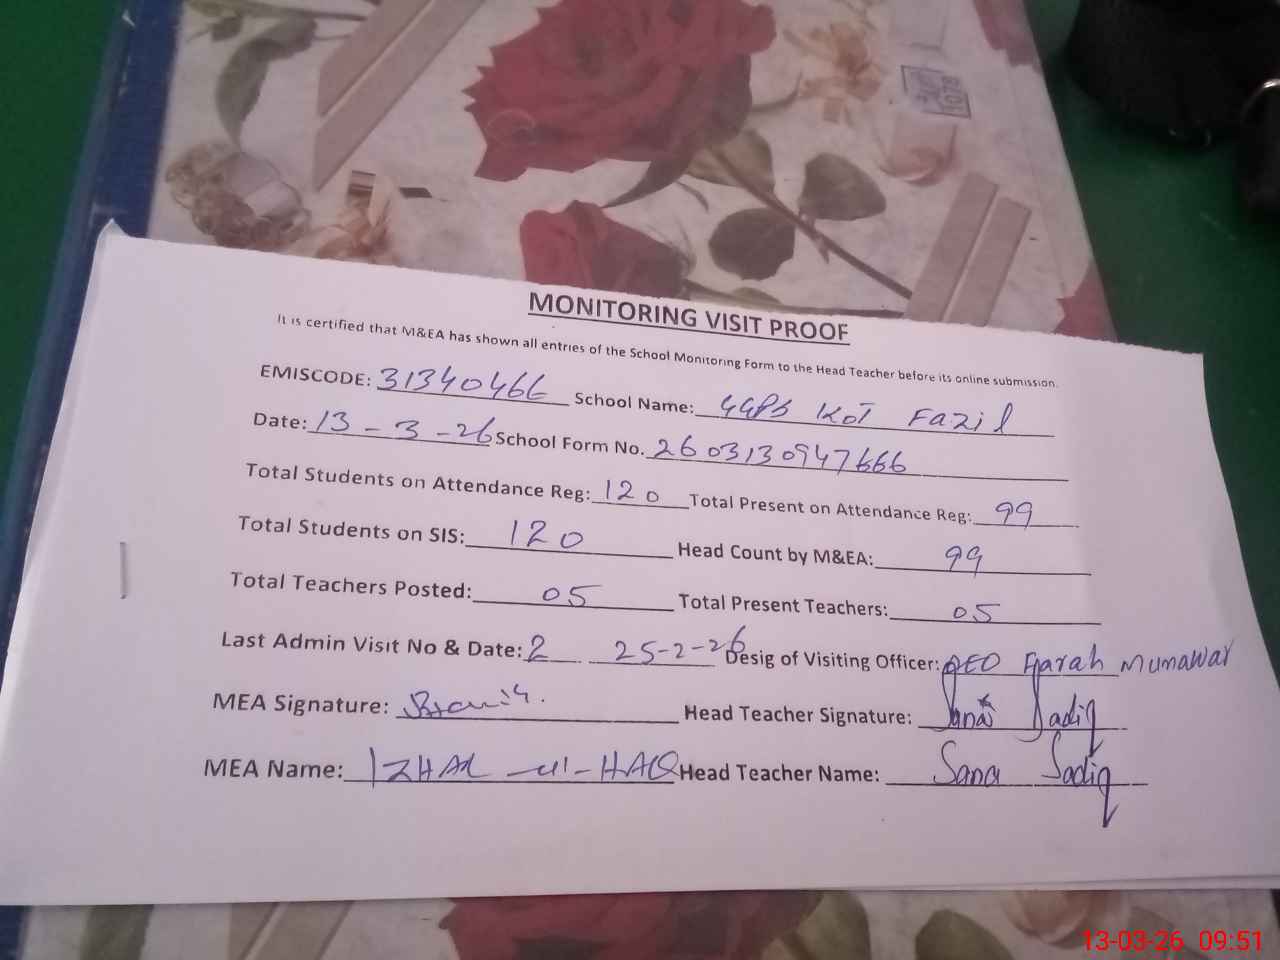 MONITORING VISIT PROOF
It is certified that M&EA has shown all entries of the School Monitoring Form to the Head Teacher before its online submission.
EMISCODE: 31340466 School Name: GGPS KOT Fazil
Date: 13-3-26 School Form No. 2603130947666
Total Students on Attendance Reg: 120 Total Present on Attendance Reg: 99
Total Students on SIS: 120 Head Count by M&EA: 99
Total Teachers Posted: 05 Total Present Teachers: 05
Last Admin Visit No & Date: 2 25-2-26 Desig of Visiting Officer: Farah Munawar
MEA Signature: Head Teacher Signature: Sana Sadiq
MEA Name: -ul-HAQ Head Teacher Name: Sana Sadiq
13-03-26 09:51